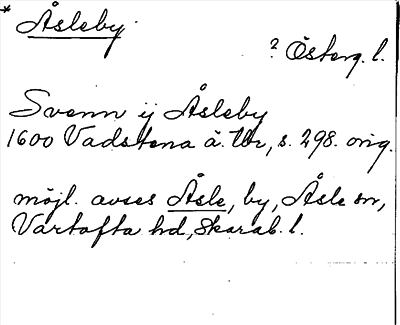 * Åsleby
? Österg. l.
Svenn ij Åsleby
1600 Vadstena ä. tbr, s. 298. orig.
möjl. avses Åsle, by, Åsle sn,
Vartofta hd, Skarab. l.